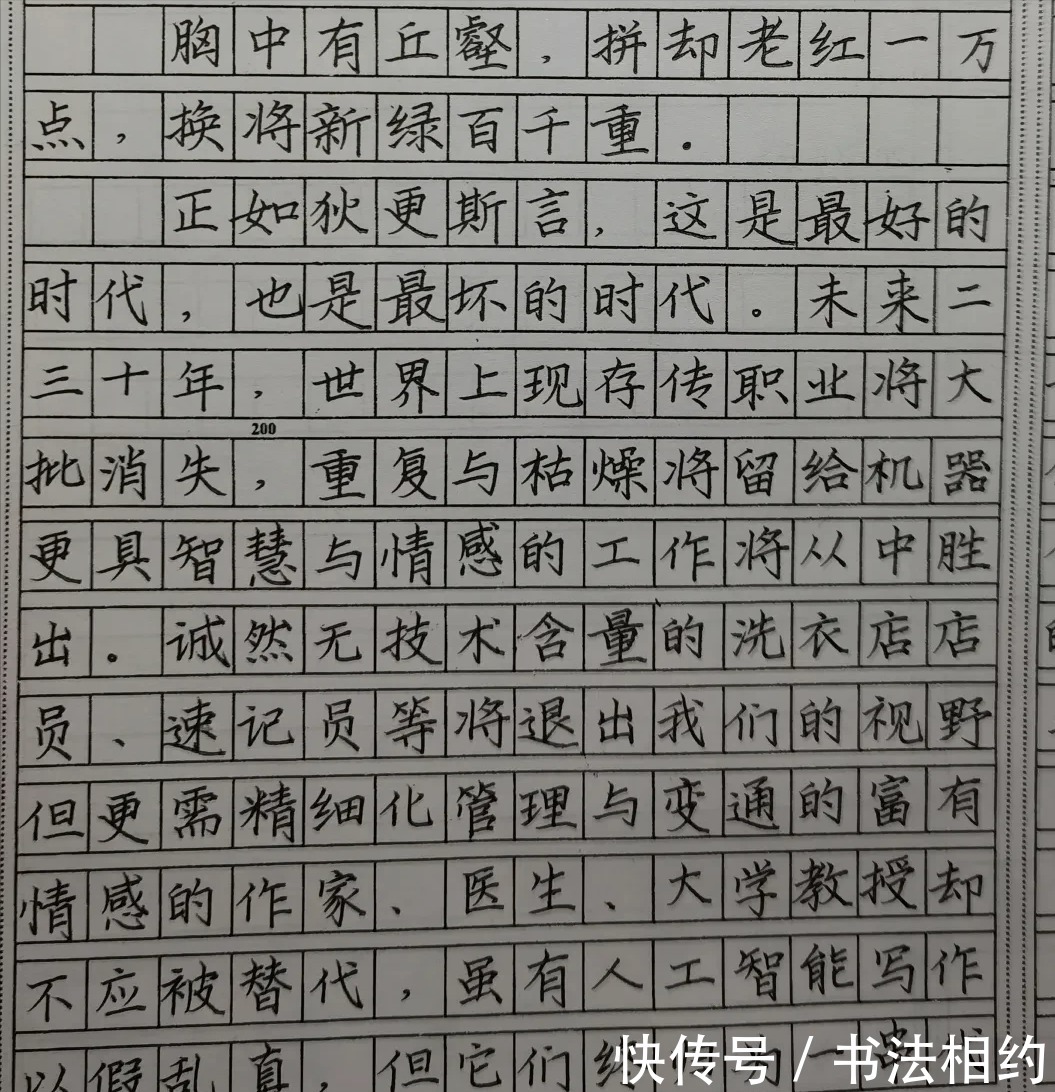 胸中有丘壑，拼却老红一万
点，换将新绿百千重.
正如狄更斯言，这是最好的
时代，也是最坏的时代。未来二
三十年，世界上现存传职业将大
200
批消失，重复与枯燥将留给机器
更具智慧与情感的工作将从中胜
出。诚然无技术含量的洗衣店店
员、速记员等将退出我们的视野
但更需精细化管理与变通的富有
情感的作家、医生、大学教授却
不应被替代，虽有人工智能写作
以假乱真，但它们
快传号/书法相约